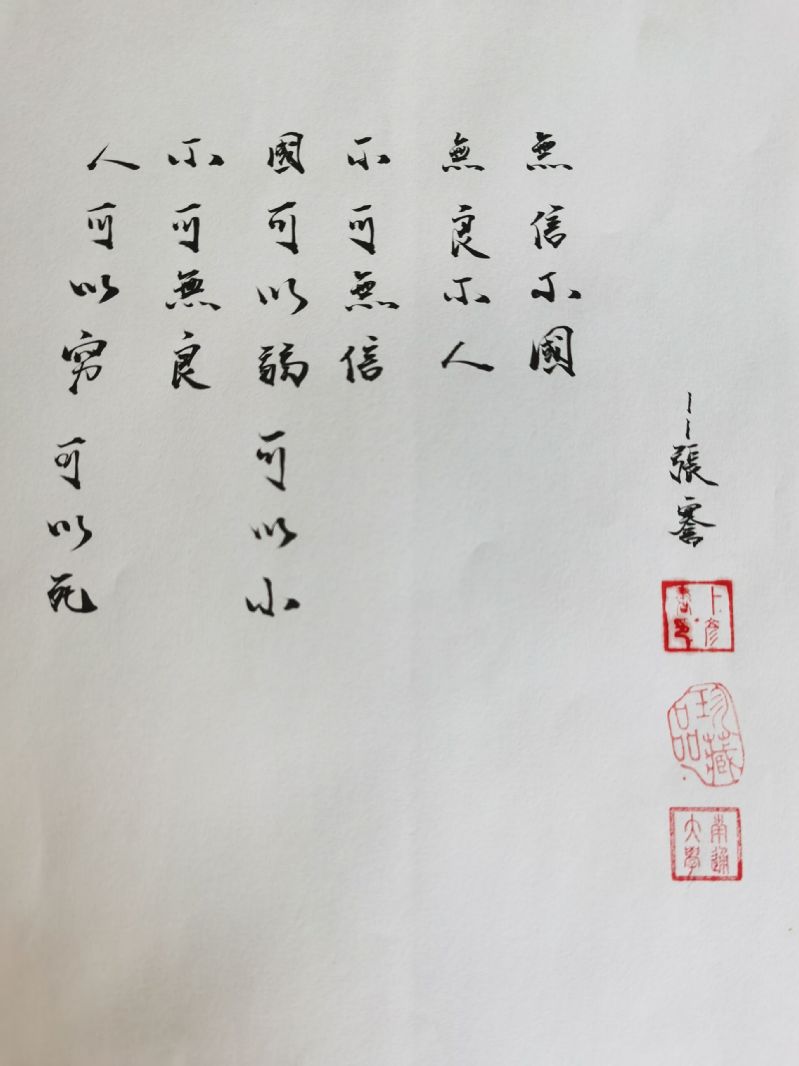 人可以穷可以死
不可無良
國可以弱可以小
不可無信
無良不人
無信不國
——張謇
珍藏品
南通大學